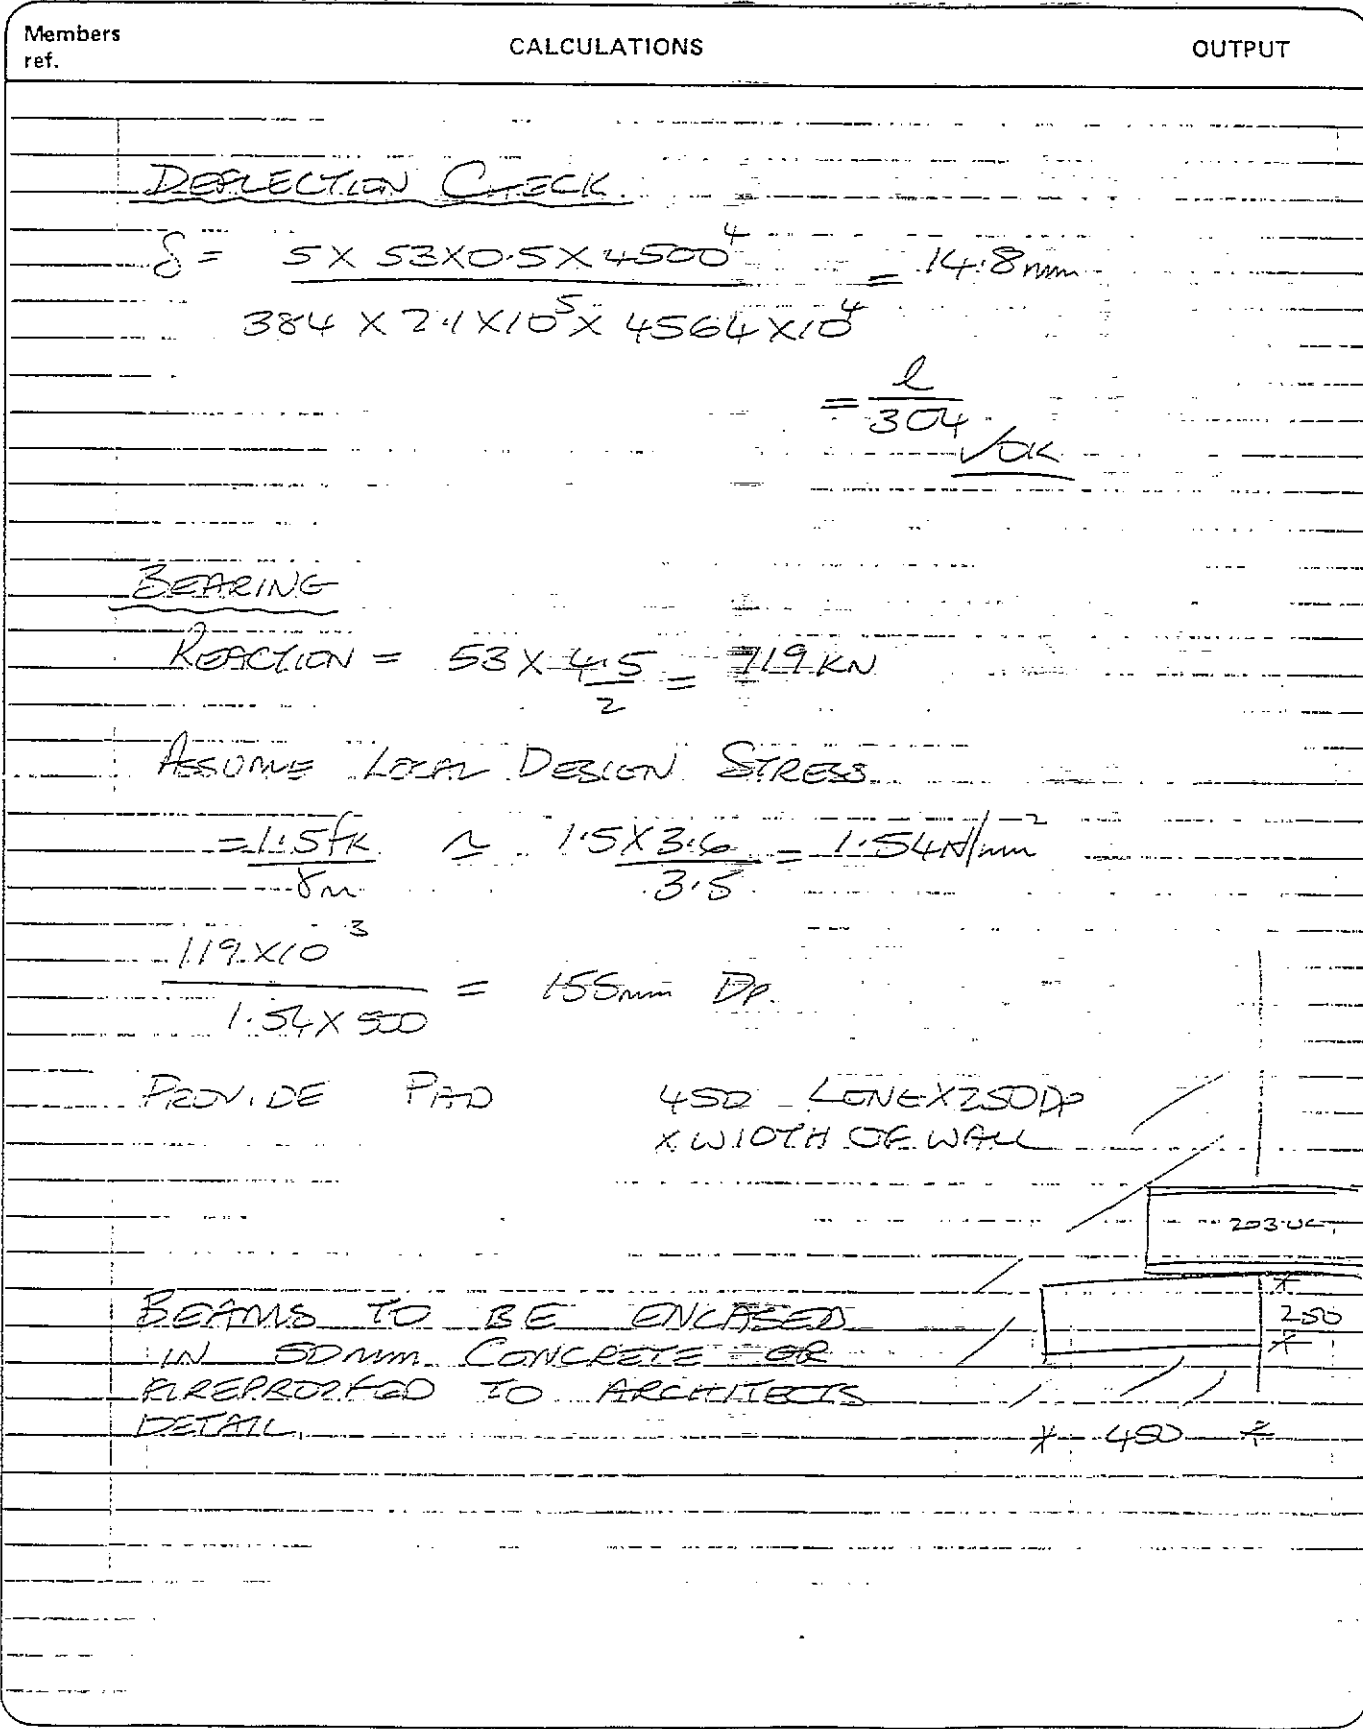 Members ref.
CALCULATIONS
OUTPUT
DEFLECTION CHECK.
δ = 5 X 53 X 0.5 X 4500⁴ / 384 X 2.1 X 10⁵ X 4564 X 10⁴ = 14.8mm
= l/304
✓OK
BEARING
REACTION = 53 X 4.5/2 = 119 KN
ASSUME LOCAL DESIGN STRESS
= 1.5fk/γm ≃ 1.5 X 3.6/3.5 = 1.54N/mm⁻²
119 X 10³ / 1.54 X 500 = 155mm DP.
PROVIDE PAD 450 LONG X 250 DP
X WIDTH OF WALL
203 UC
250
BEAMS TO BE ENCASED
IN 50mm CONCRETE OR
FIREPROOFED TO ARCHITECTS
DETAIL.
450